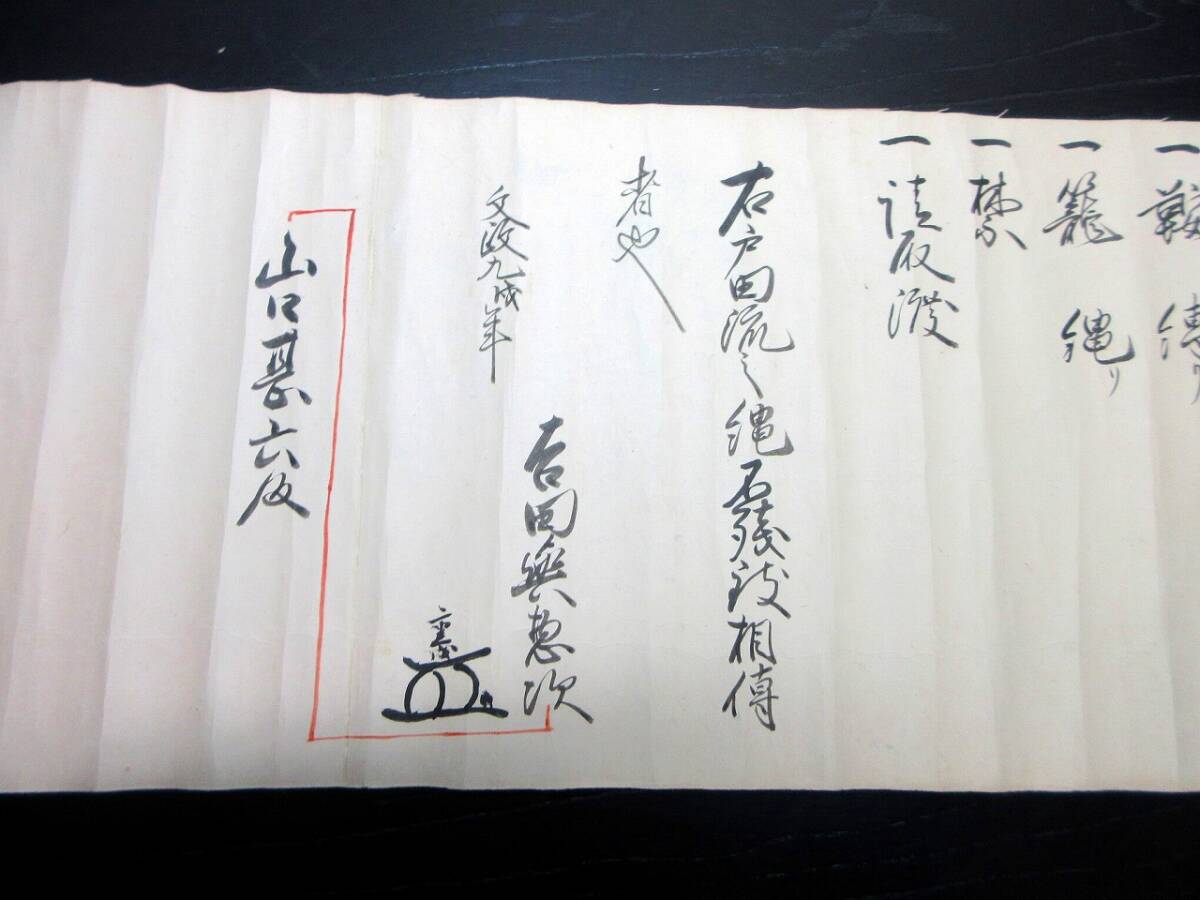 一
一 籠 縄リ
一 禁
一 請取渡
右戸田流之縄不残致相傳
者也
文政九戌年
吉田與惣次
山口甚六殿